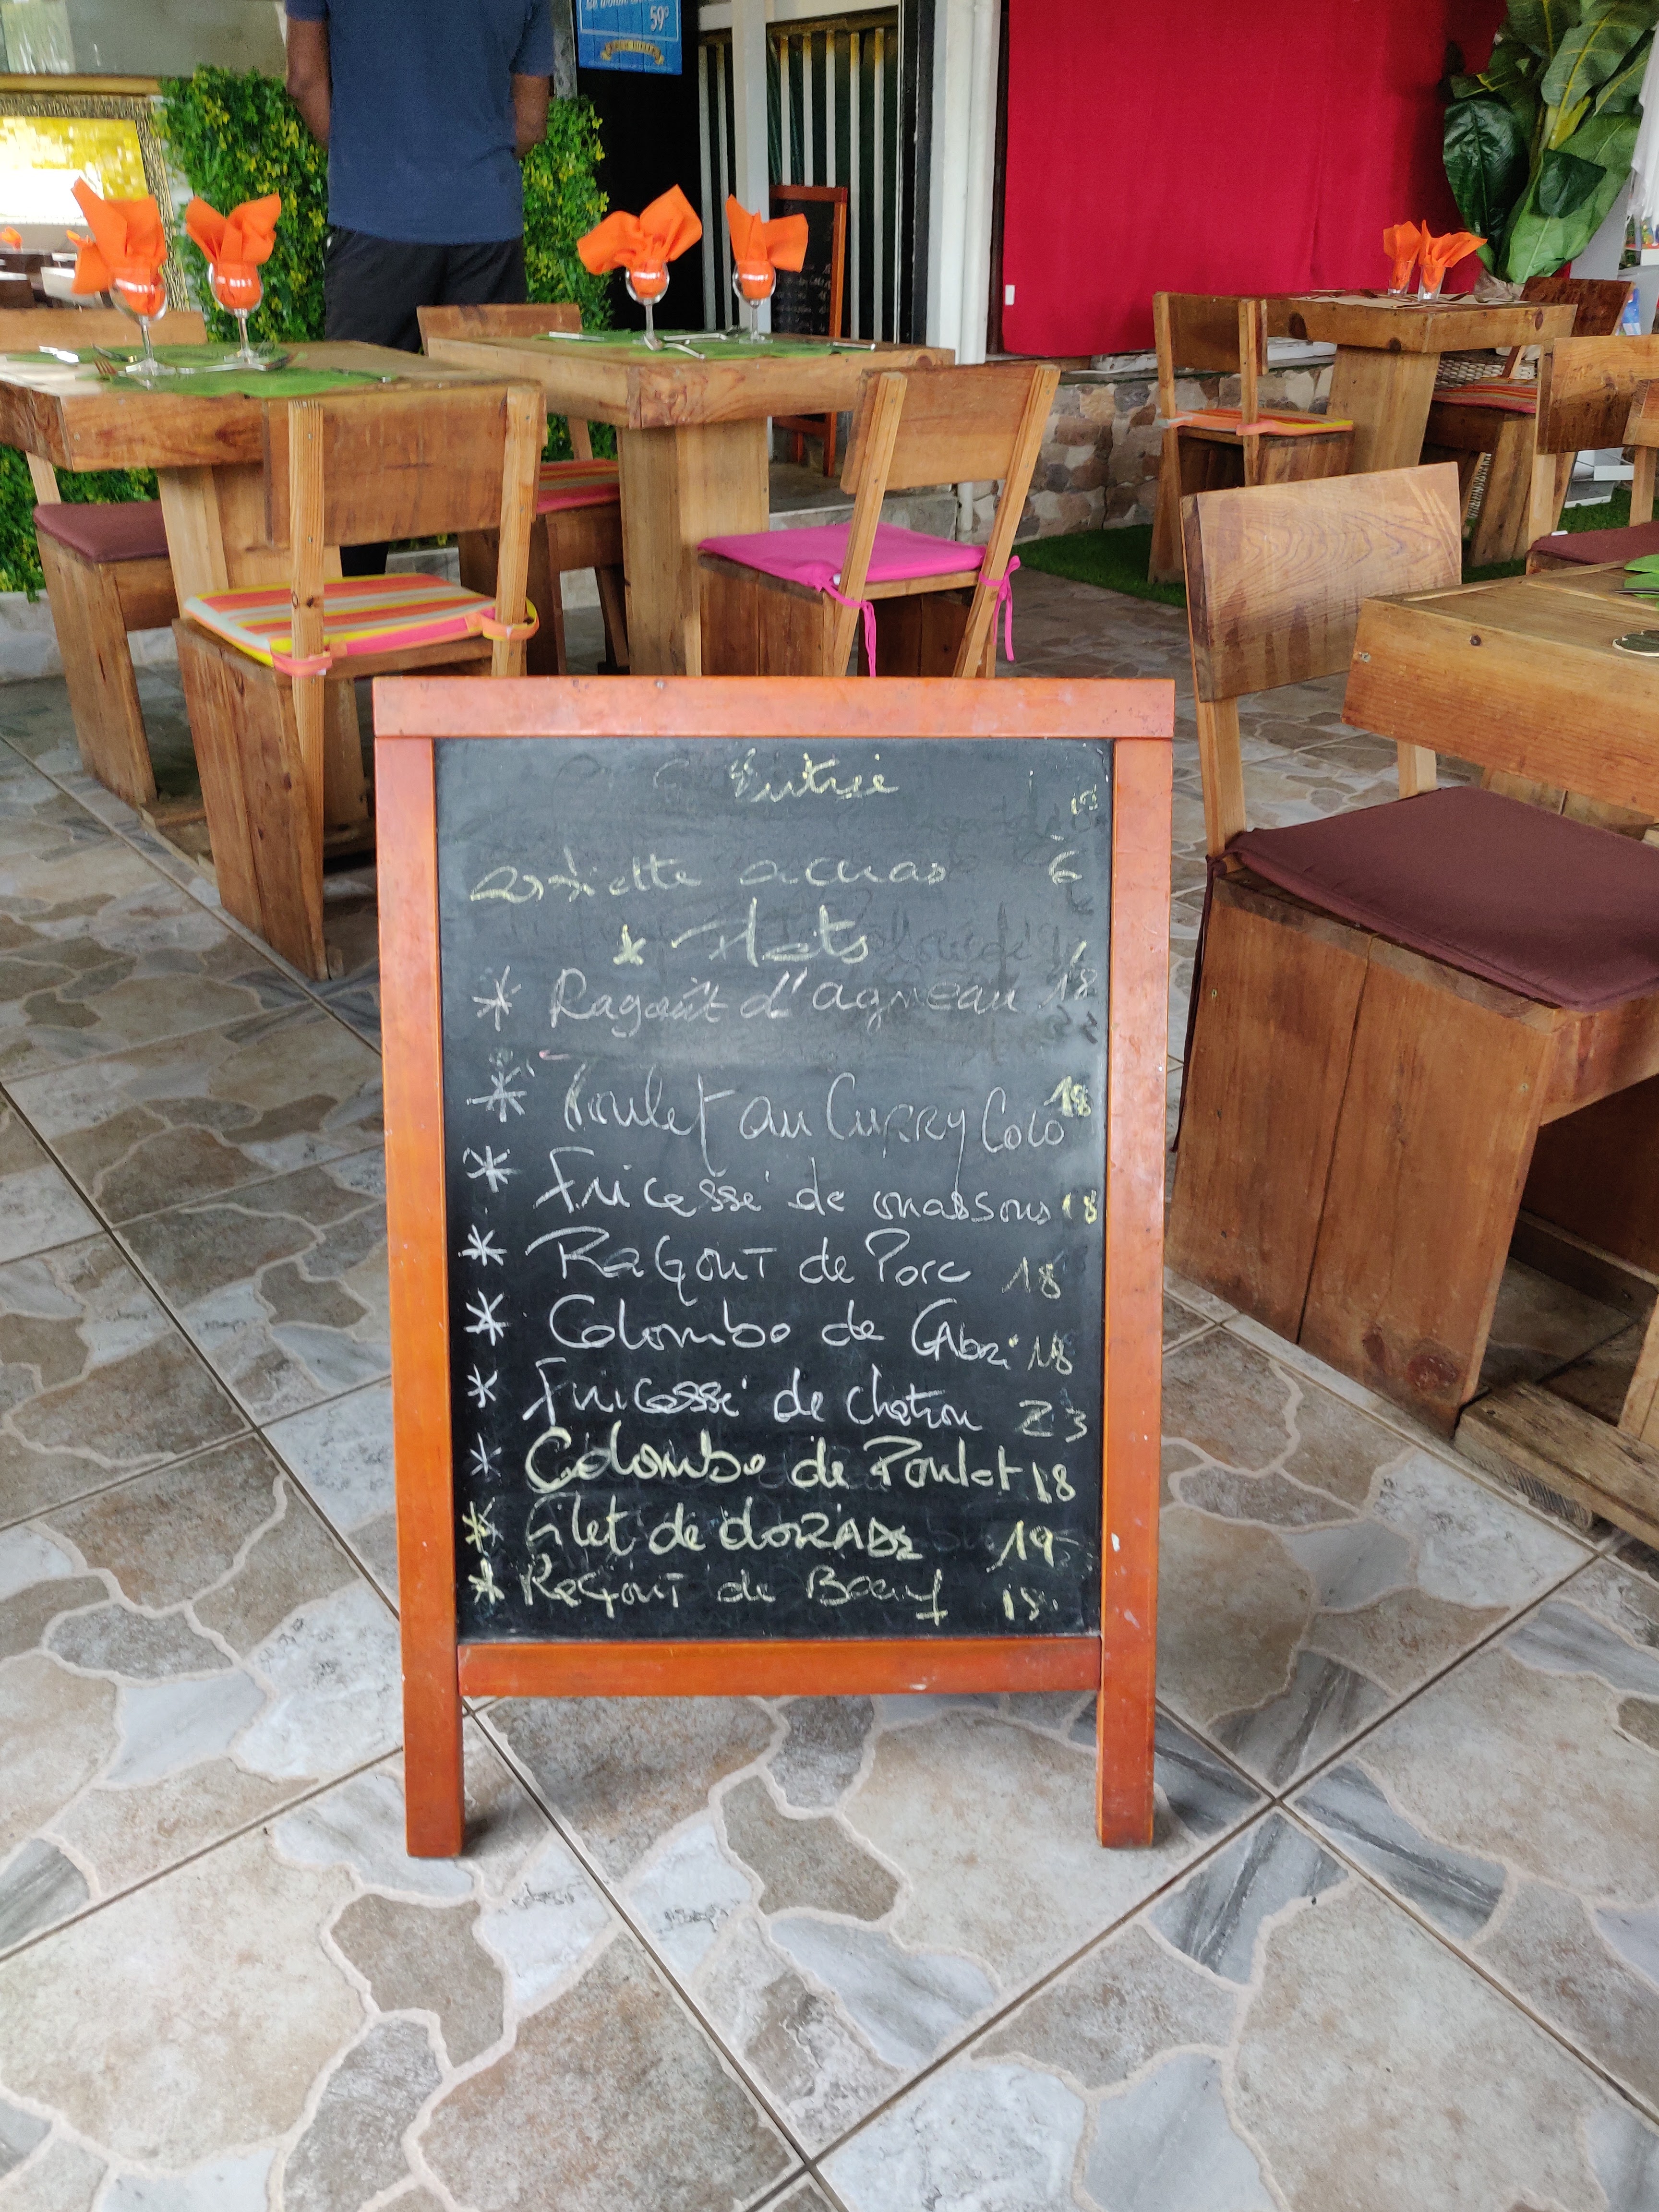 59°
Entrée
Assiette acras 6
* Plats
* Ragoût d'agneau 18
* Poulet au Curry Coco 18
* Fricassé de ouassous 18
* RaGouT de Porc 18
* Colombo de CAbri 18
* Fricassé de chatrou 23
* Colombo de Poulet 18
* Filet de doRADe 19
* RaGouT de Boeuf 18